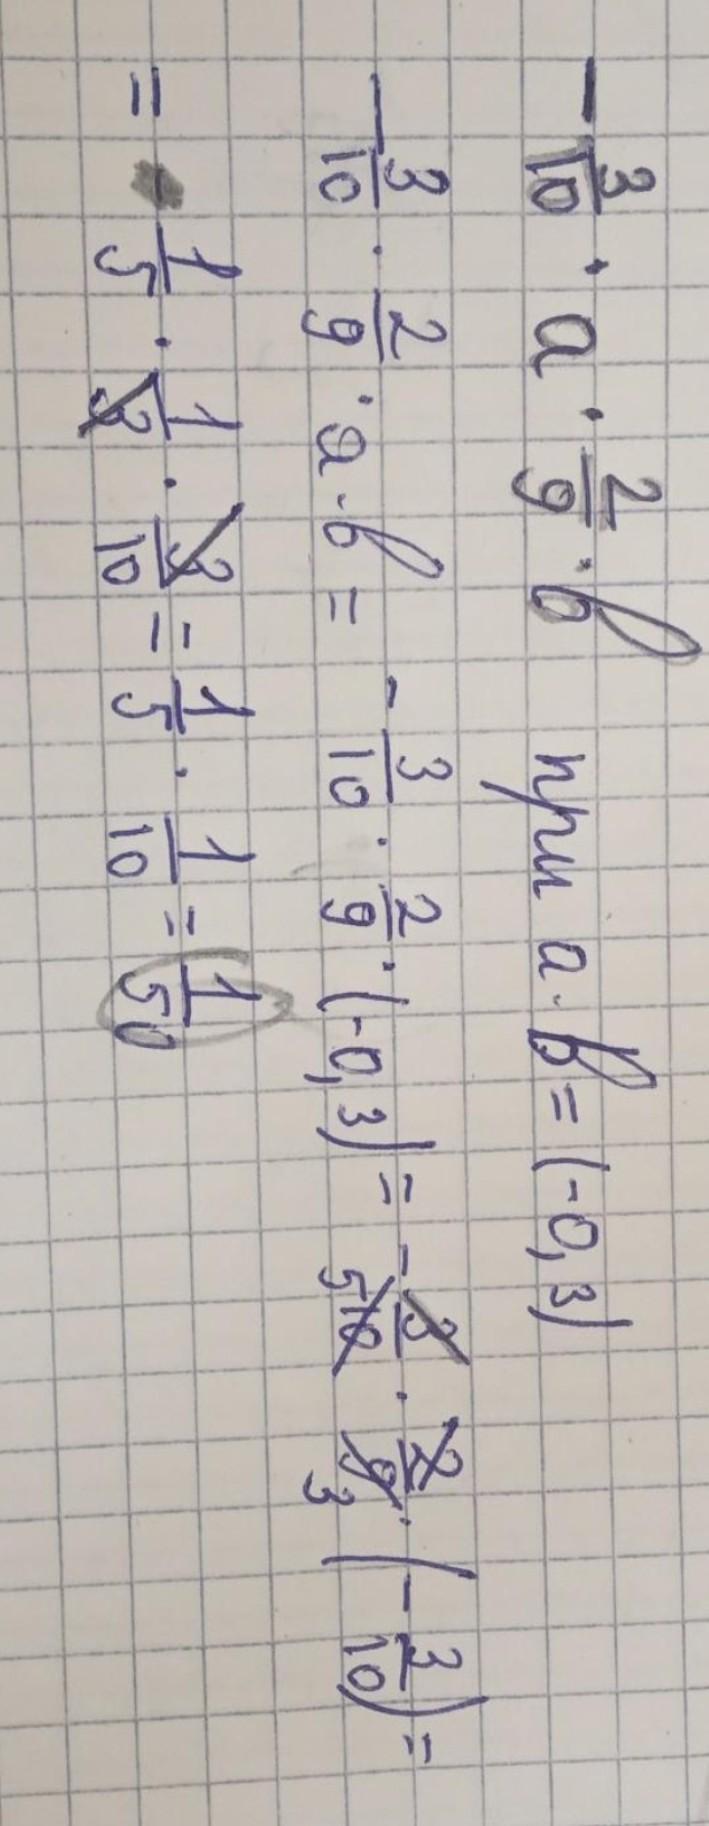 - 3/10 · a · 2/9 · b при a · b = (-0,3)
- 3/10 · 2/9 · a · b = - 3/10 · 2/9 · (-0,3) = - 3/5 10 · 2/9 3 · (- 3/10) =
= 1/5 · 1/3 · 3/10 = 1/5 · 1/10 = 1/50